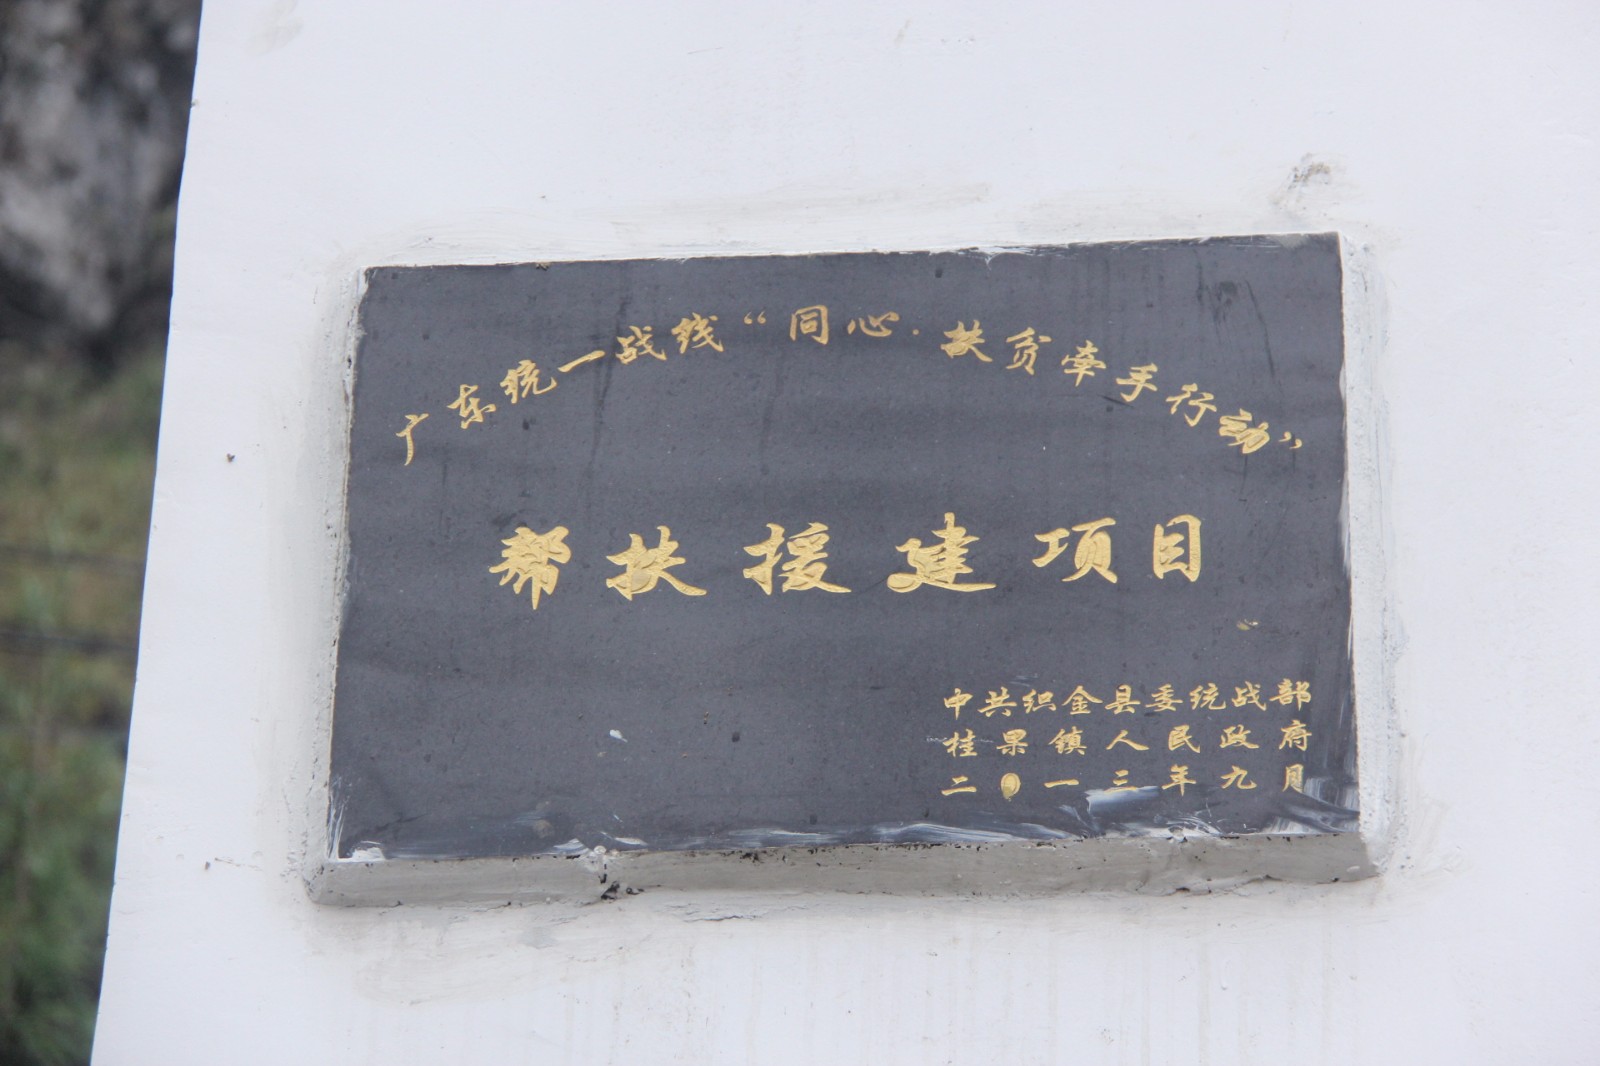 广东统一战线“同心·扶贫牵手行动”
帮扶援建项目
中共织金县委统战部
桂果镇人民政府
二0一三年九月